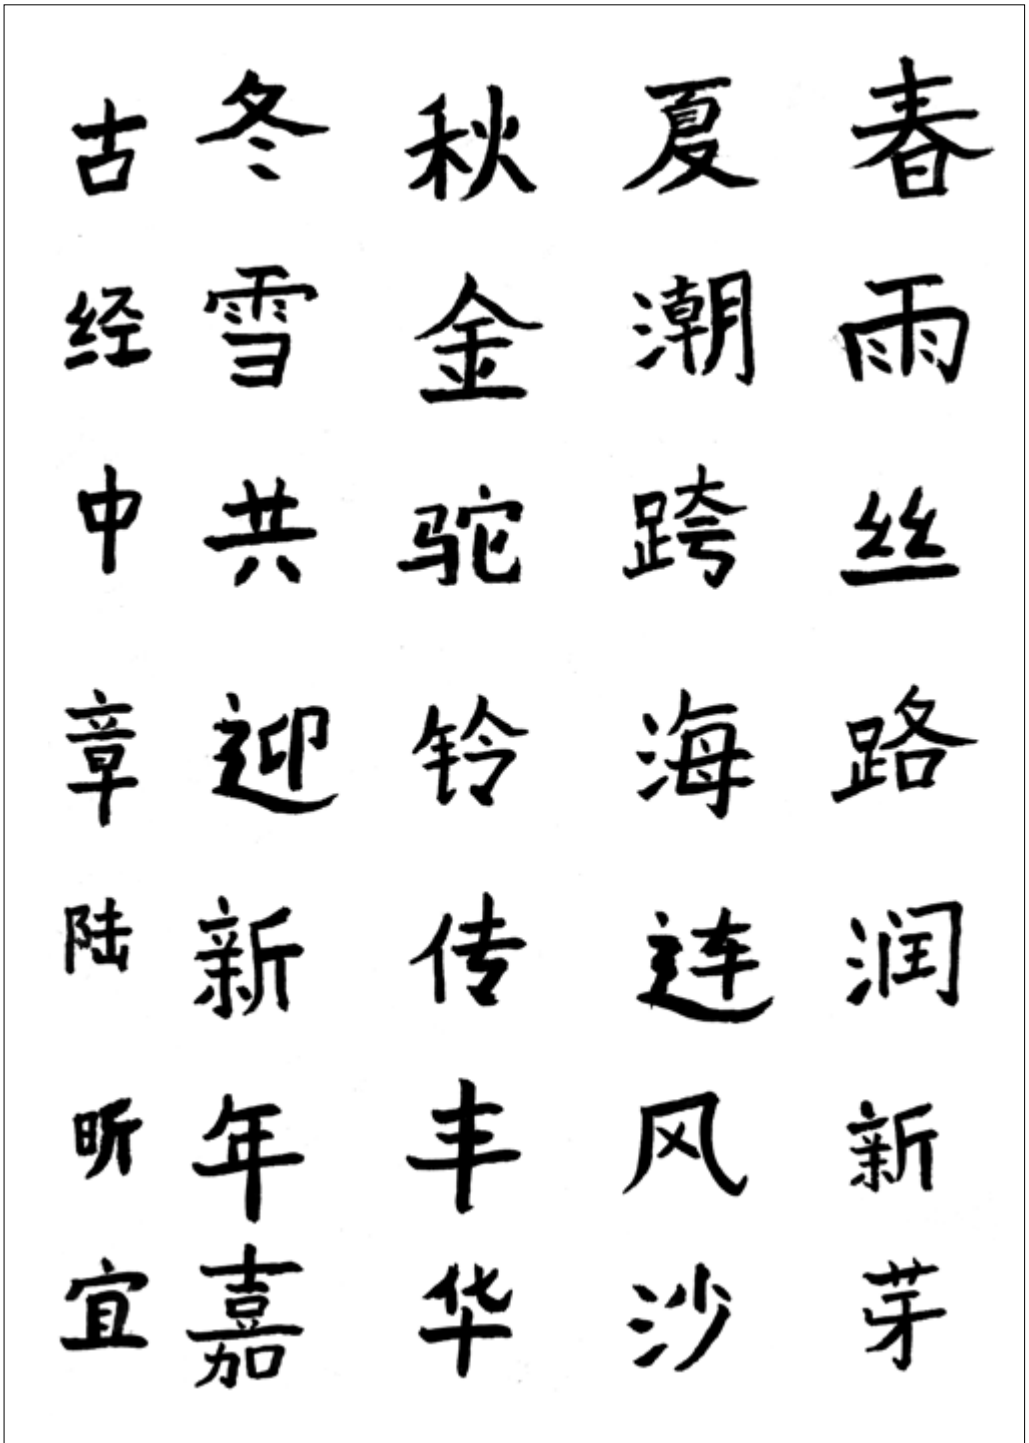 春雨丝路润新芽
夏潮跨海连风沙
秋金驼铃传丰华
冬雪共迎新年嘉
古经中章陆昕宜